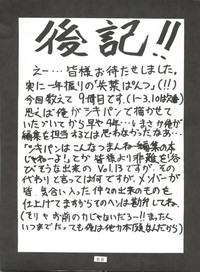 後記!!
えー…皆様お待たせしました。
実に一年振りの"失楽ぱんつ"(!!)
今回数えて9冊目です。
思えば俺がラキパンで描かせて
いただいてから早や4年…。まさか俺が
編集を担当するとは思わなかったなぁ…
「ラキパンはこんなつまんねー編集の本
じゃねーよ!」とか皆様より非難を浴
びそうな出来のVol.13ですが、その
代わりと言っては何ですが、メンバーが
皆、気合い入った仲々の出来のものを
仕上げてますからそのへんは勘弁してね。
(そりゃお前の力じゃないだろー!!まったく
いつまでたっても俺は他力本願なんだから)